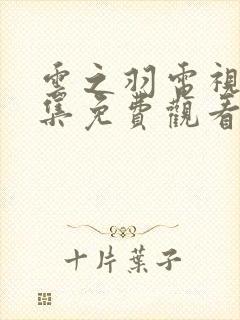 雲之羽電視
集免費觀看
十片葉子